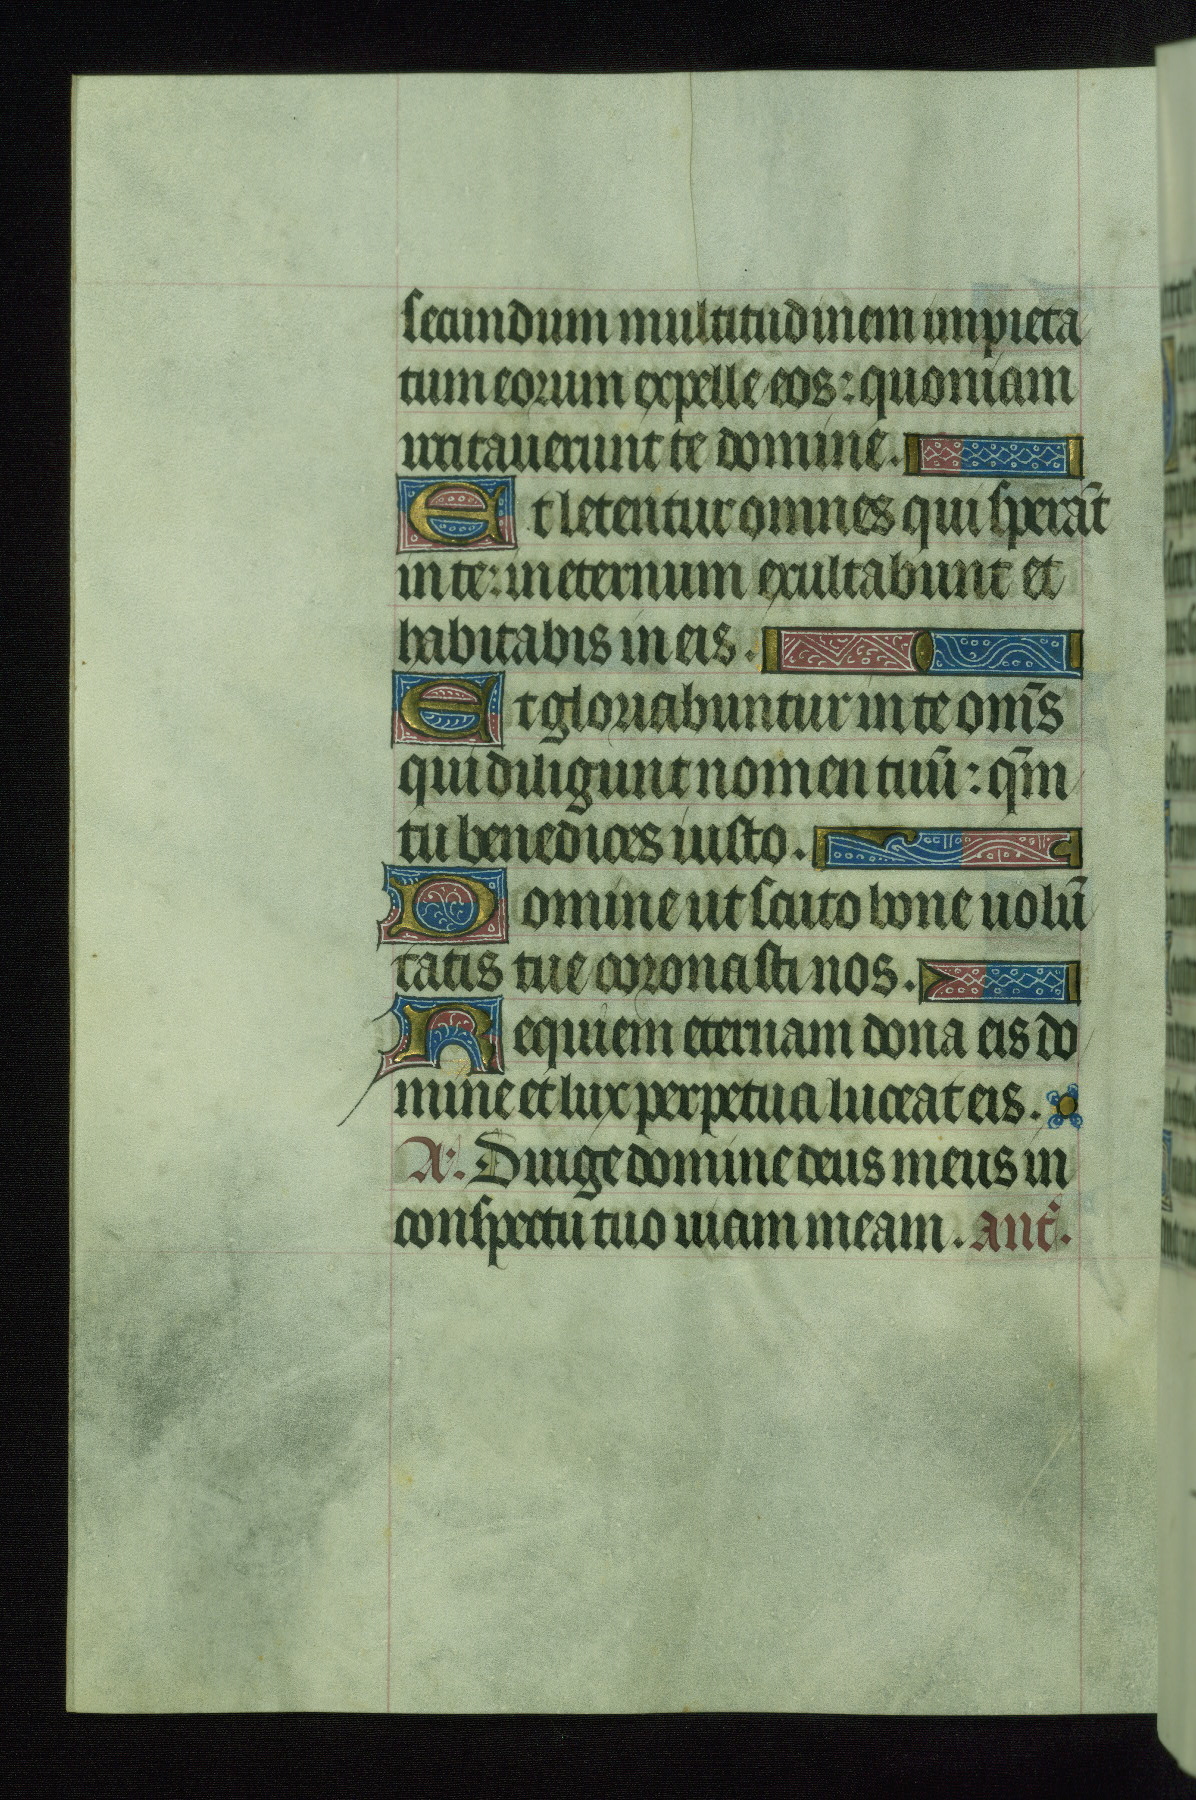 secundum multitudinem impieta
tum eorum expelle eos: quoniam
irritauerunt te domine.
Et letentur omnes qui sperãt
in te: in eternum exultabunt et
habitabis in eis.
Et gloriabuntur in te om̃s
qui diligunt nomen tuũ: qm̃
tu benedices iusto.
Domine ut scuto bone uolũ
tatis tue coronasti nos.
Requiem eternam dona eis do
mine et lux perpetua luceat eis.
A: Dirige domine deus meus in
conspectu tuo uiam meam. ant̃.